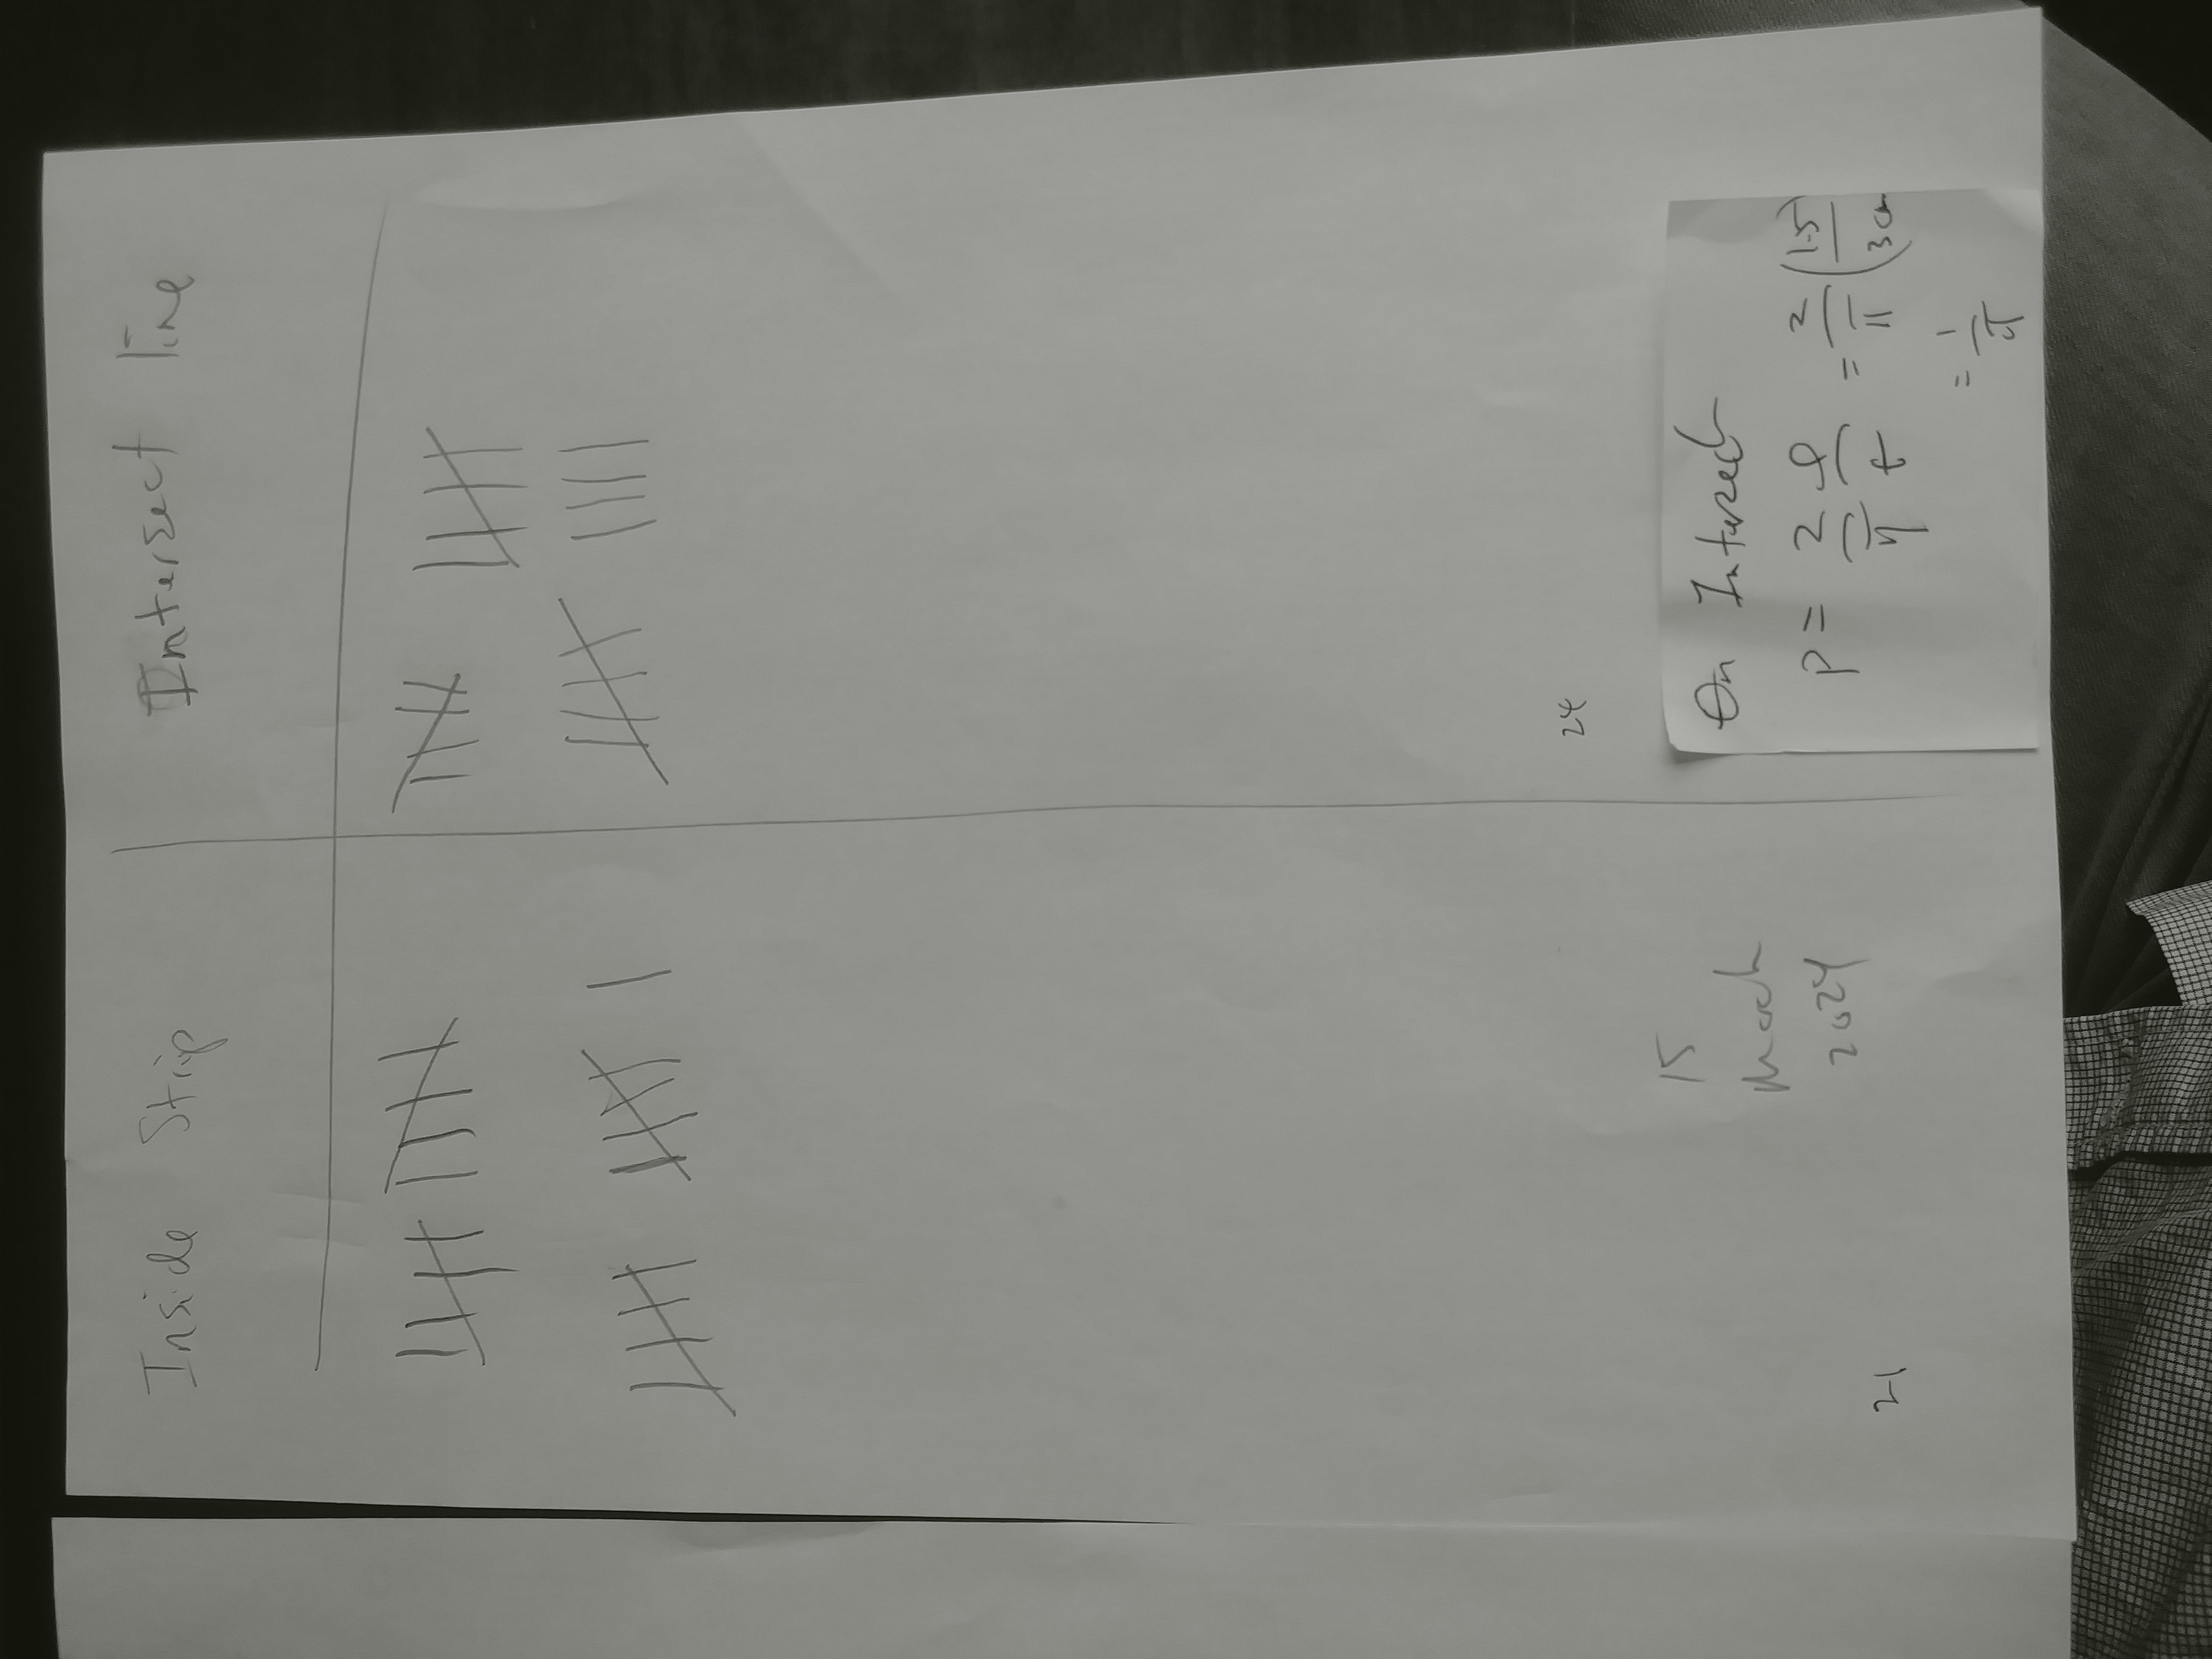 Inside Strip
Intersect line
24
15
March
2024
21
On Intersect
P = 2/π l/t = 2/π (1.5/3cm
= 1/π